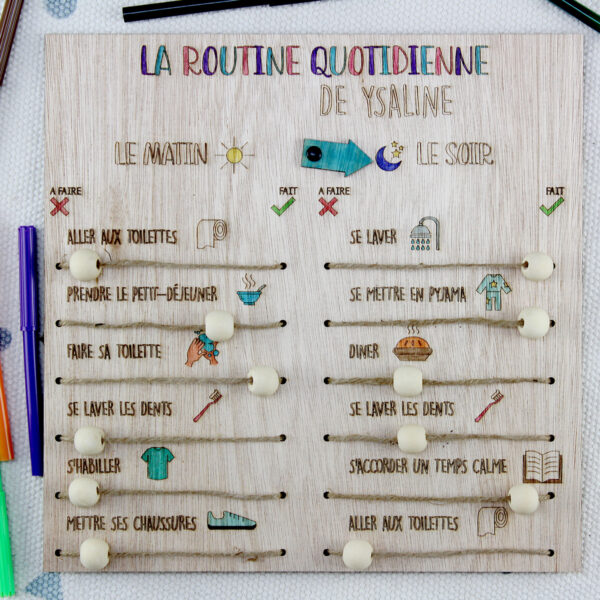 LA ROUTINE QUOTIDIENNE
DE YSALINE
LE MATIN
LE SOIR
A FAIRE
FAIT
A FAIRE
FAIT
ALLER AUX TOILETTES
PRENDRE LE PETIT-DÉJEUNER
FAIRE SA TOILETTE
SE LAVER LES DENTS
S'HABILLER
METTRE SES CHAUSSURES
SE LAVER
SE METTRE EN PYJAMA
DINER
SE LAVER LES DENTS
S'ACCORDER UN TEMPS CALME
ALLER AUX TOILETTES